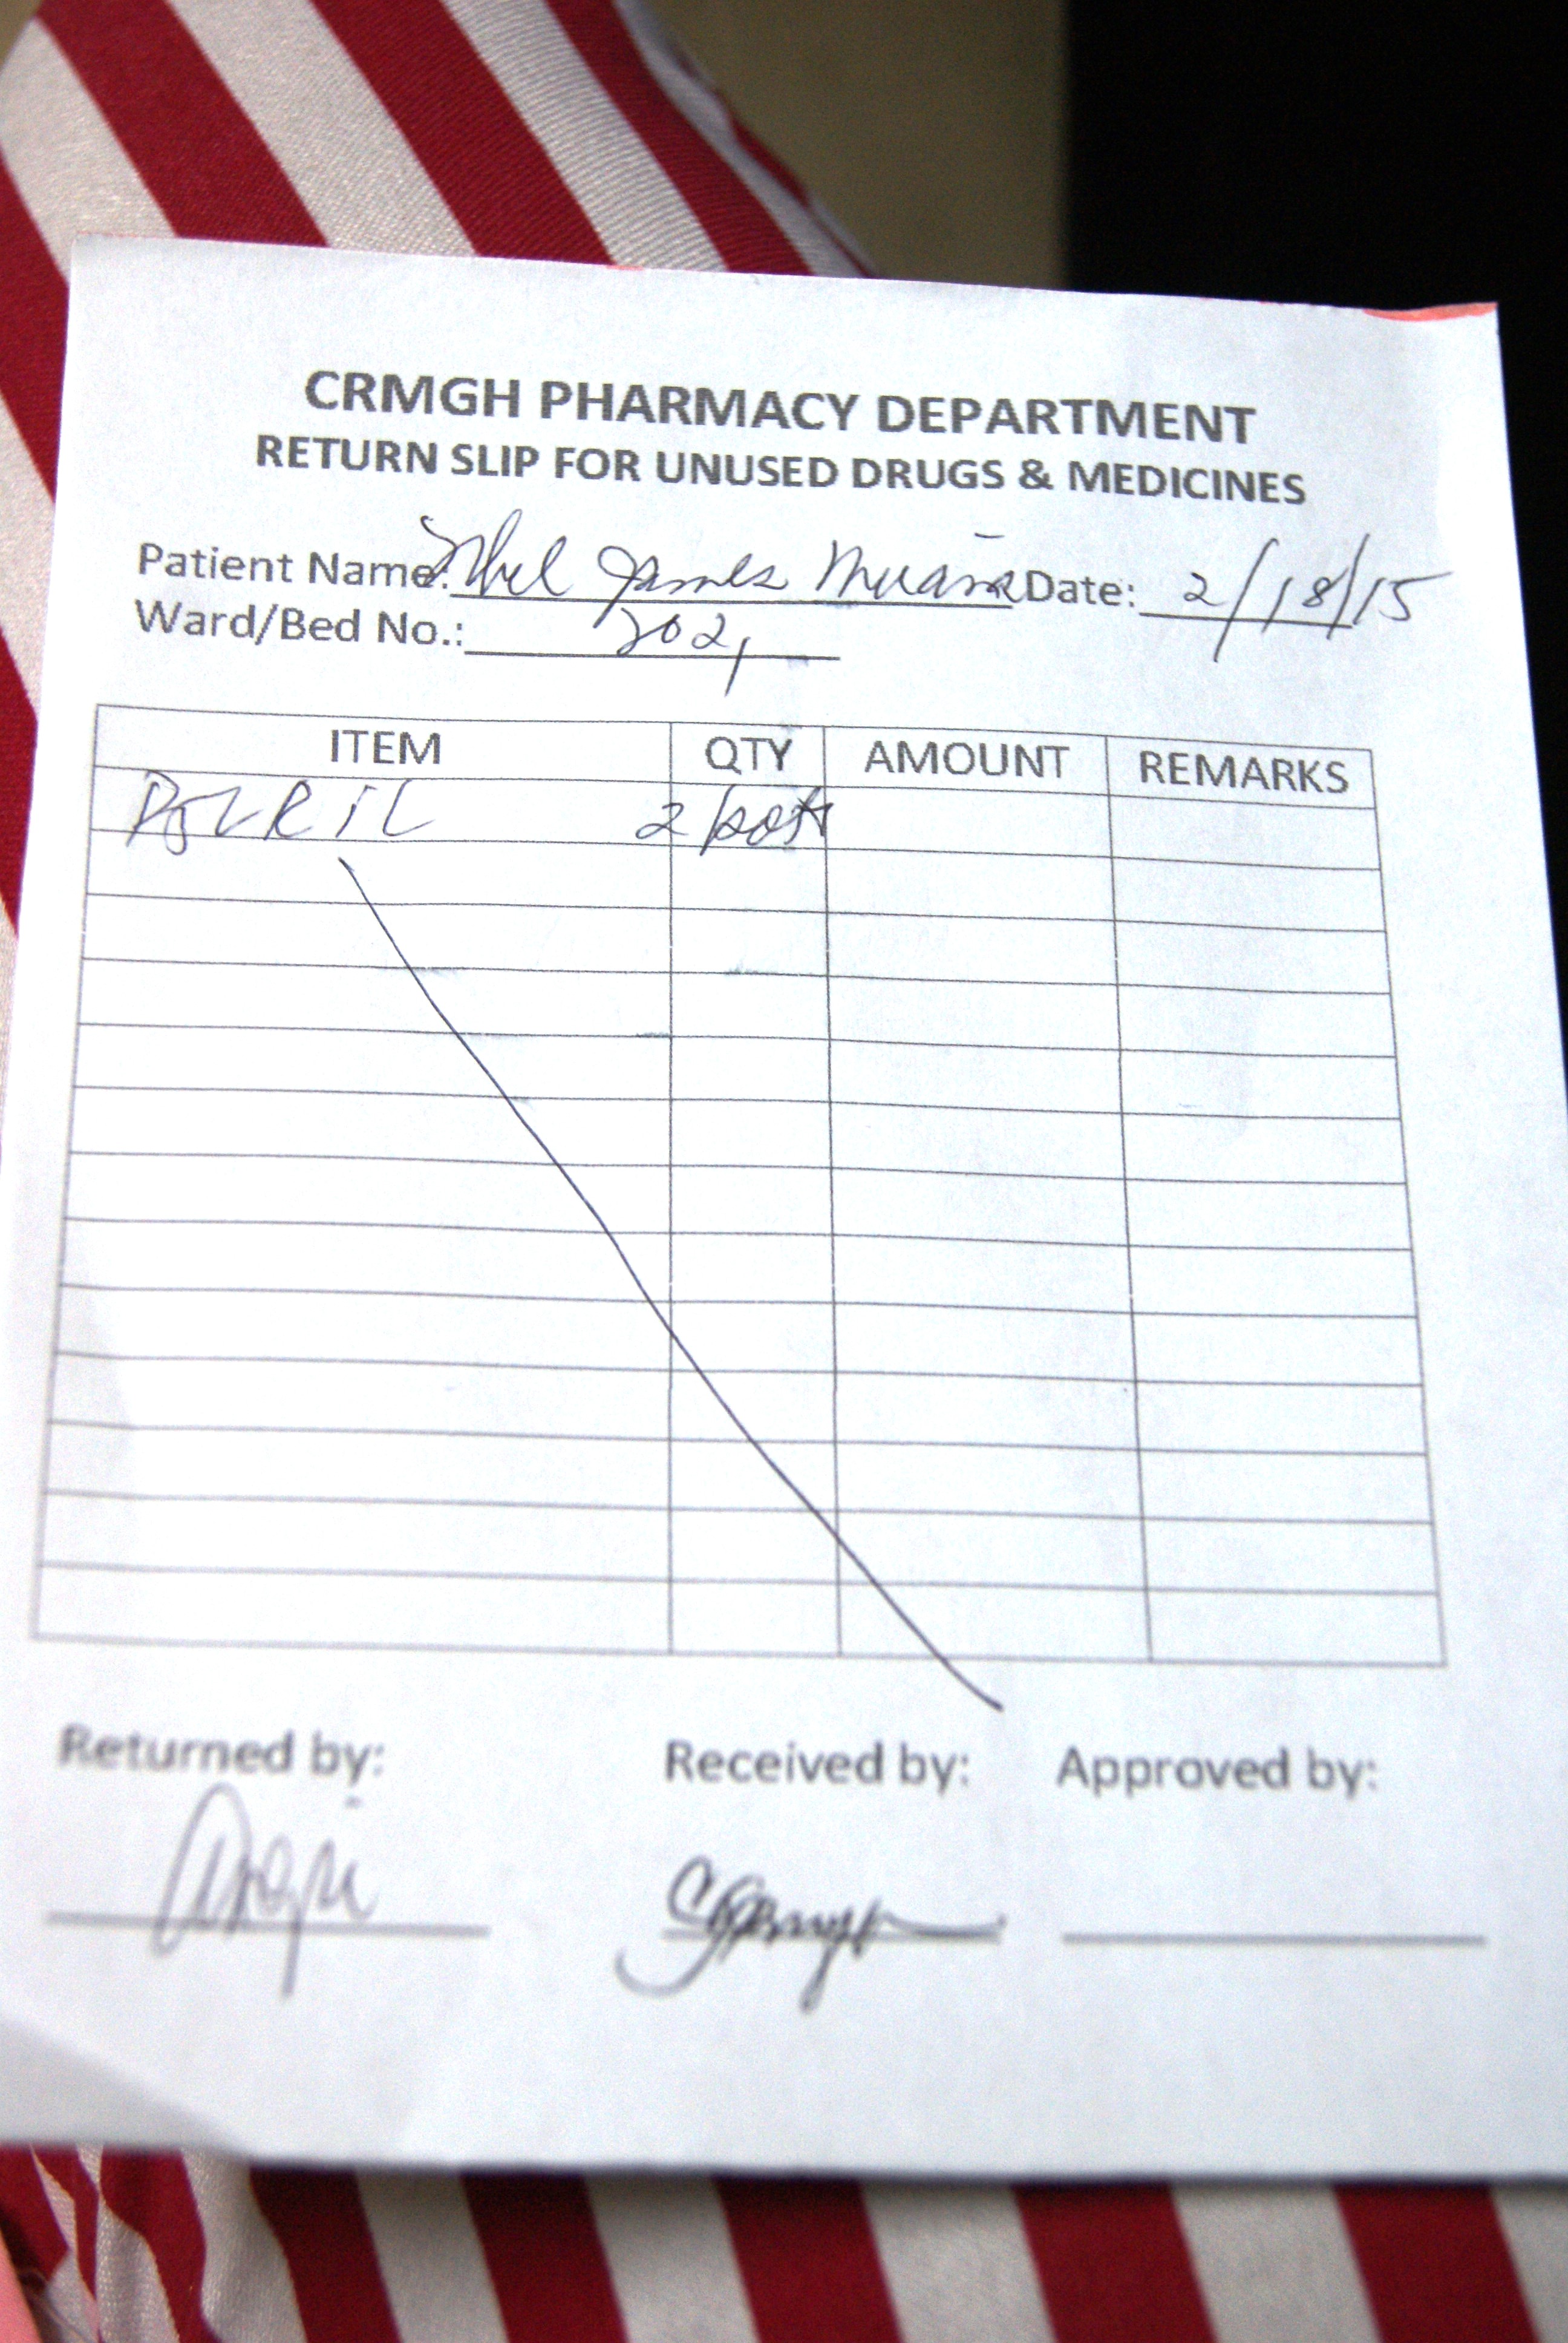 CRMGH PHARMACY DEPARTMENT
RETURN SLIP FOR UNUSED DRUGS & MEDICINES
Patient Name: James Date: 2/18/15
Ward/Bed No.: 202
ITEM QTY AMOUNT REMARKS
2
Returned by: Received by: Approved by: